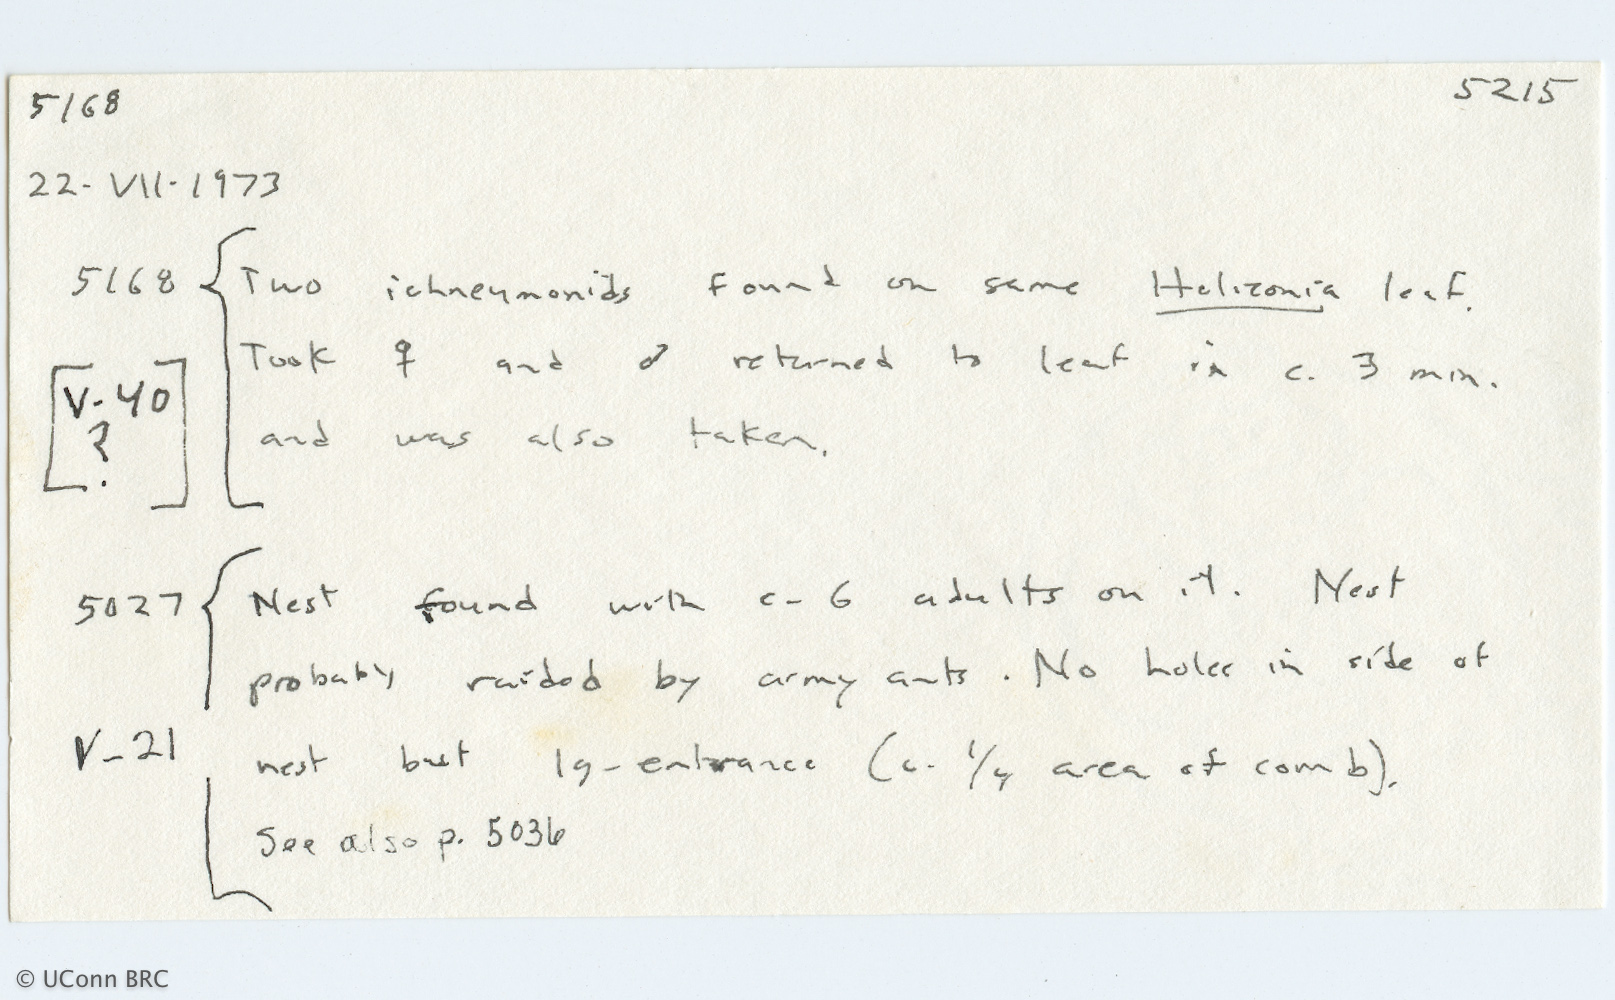 5168 5215
22-VII-1973
5168 { Two ichneumonids found on same Heliconia leaf.
Took ♀ and ♂ returned to leaf in c. 3 min.
[V-40 ?]
and was also taken.
5027 { Nest found with c- 6 adults on it. Nest
probably raided by army ants. No holes in side of
V-21 nest but lg-entrance (c. 1/4 area of comb).
See also p. 5036
© UConn BRC